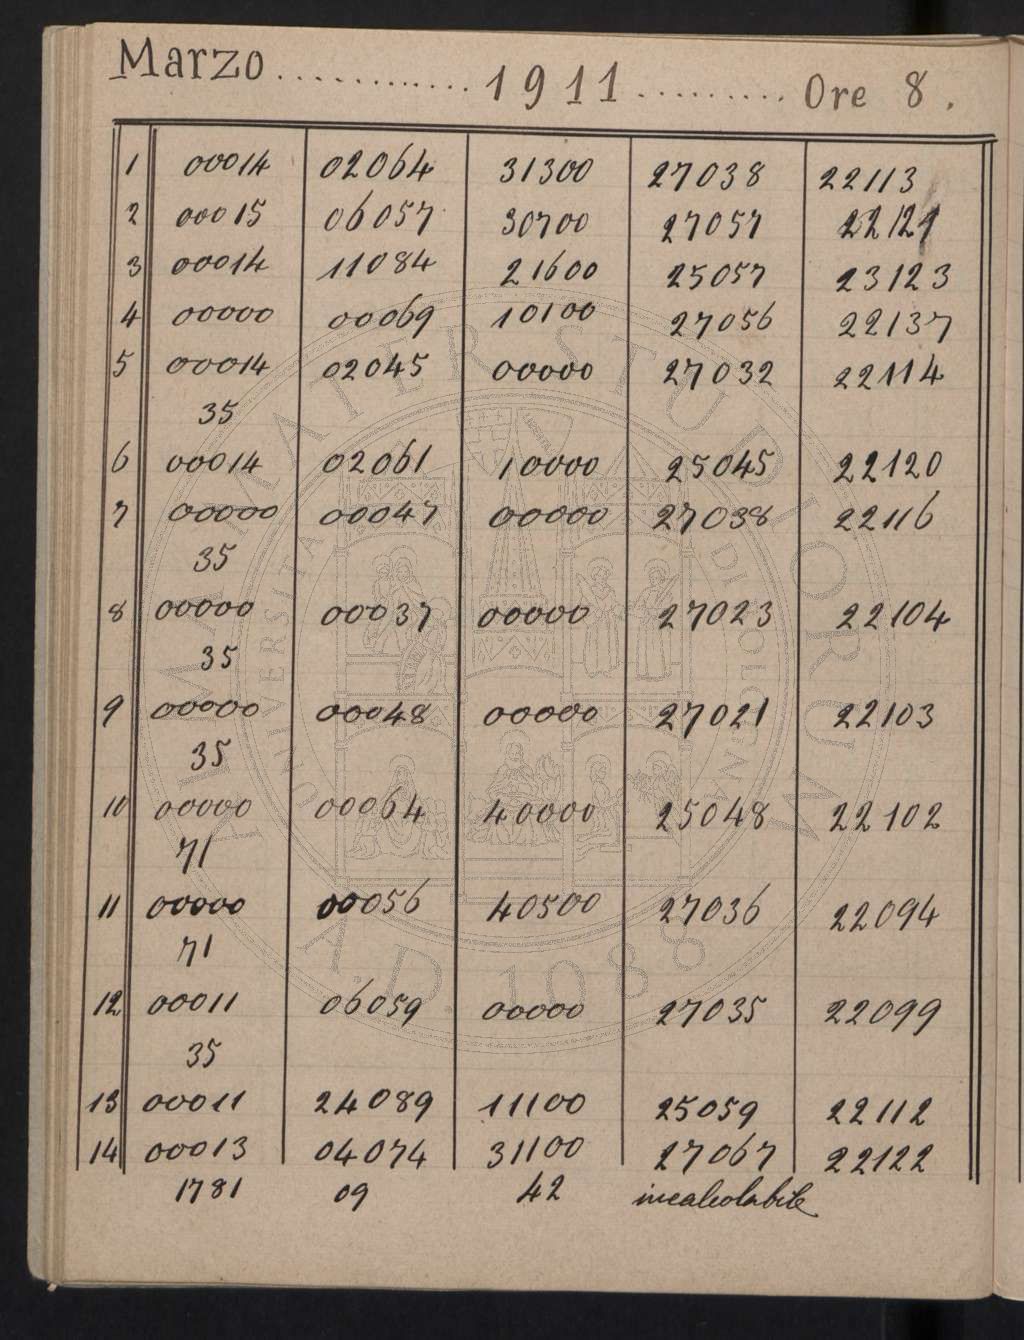 Marzo ............ 1911 .......... Ore 8.
1 00014 02064 31300 27038 22113
2 00015 06057 30700 27057 22121
3 00014 11084 21600 25057 23123
4 00000 00069 10100 27056 22137
5 00014 02045 00000 27032 22114
35
6 00014 02061 10000 25045 22120
7 00000 00047 00000 27038 22116
35
8 00000 00037 00000 27023 22104
35
9 00000 00048 00000 27021 22103
35
10 00000 00064 40000 25048 22102
71
11 00000 00056 40500 27036 22094
71
12 00011 06059 00000 27035 22099
35
13 00011 24089 11100 25059 22112
14 00013 04074 31100 27067 22122
1781 09 42 incalcolabile
ALMA MATER STUDIORUM
UNIVERSITÀ DI BOLOGNA
A.D. 1088